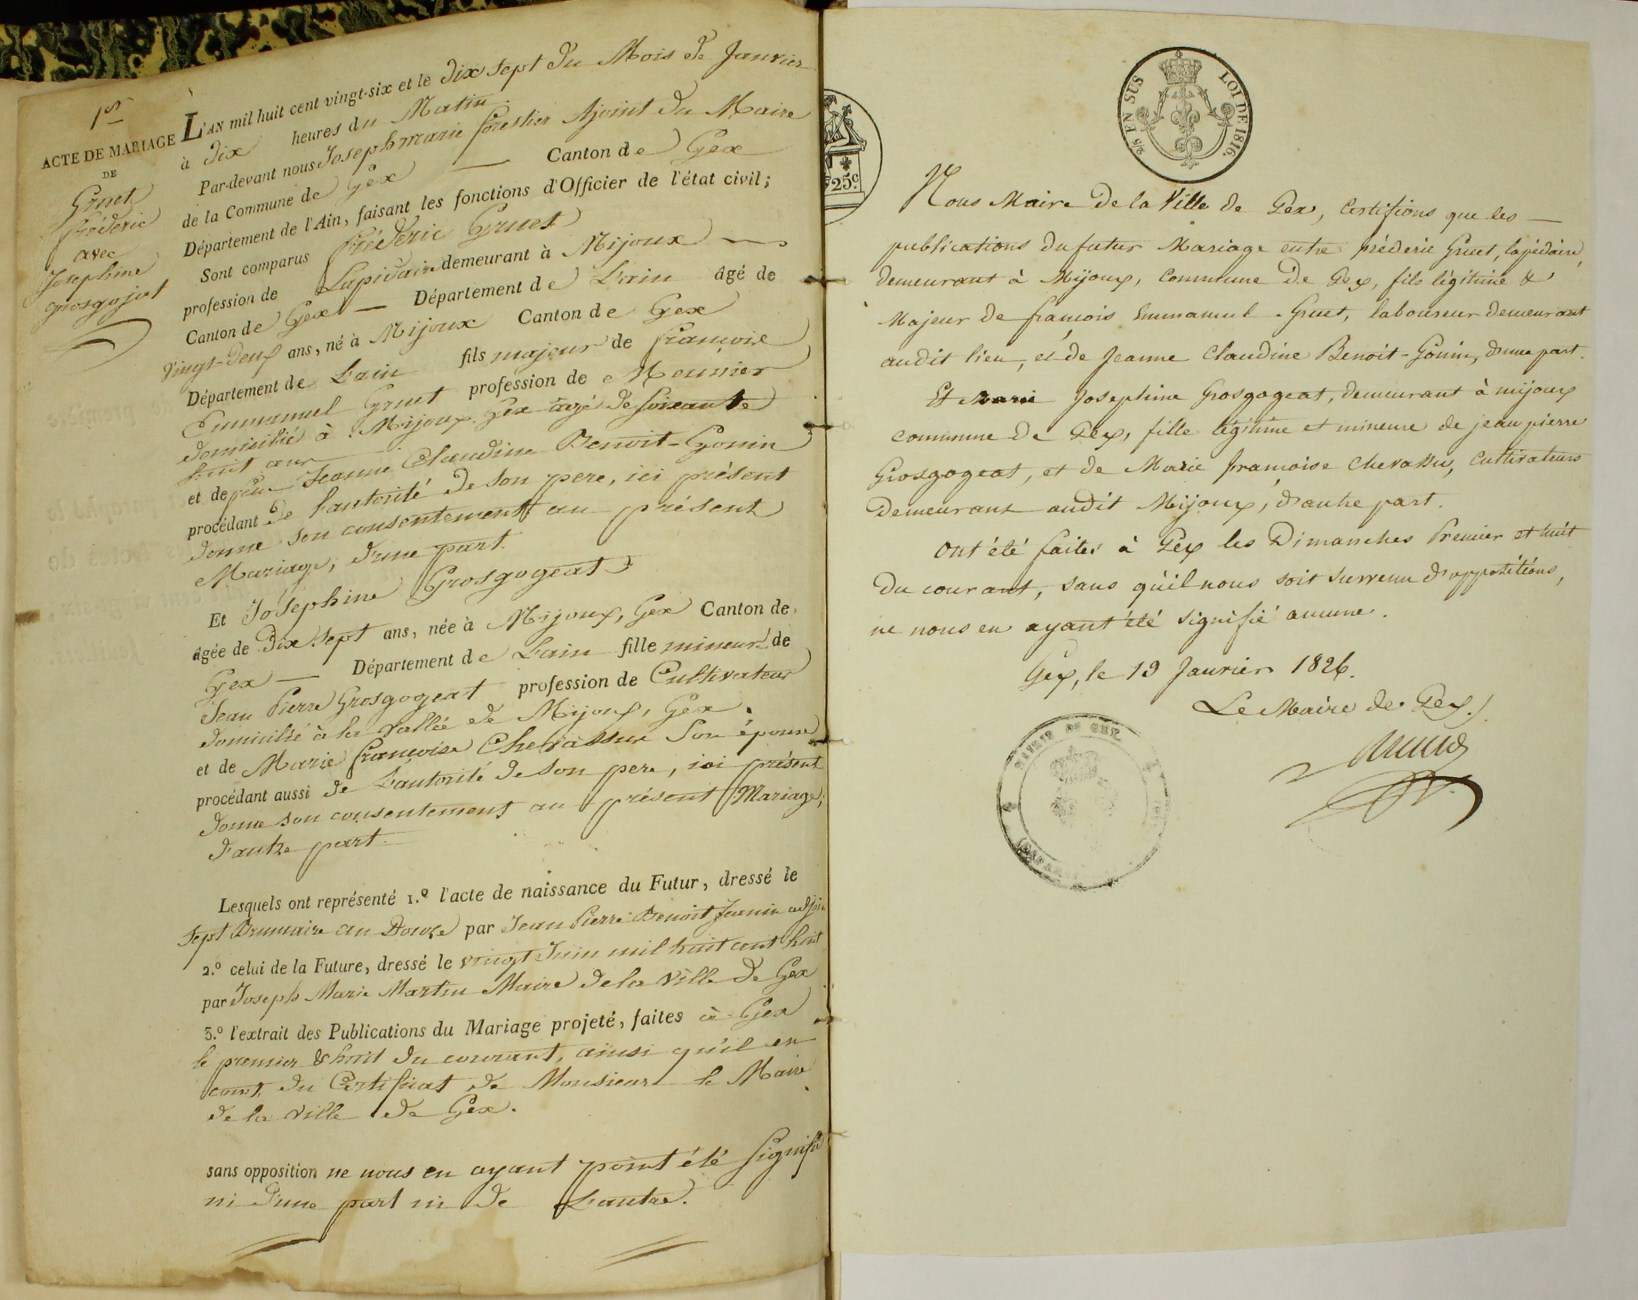 1er
ACTE DE MARIAGE
DE
Gruet
fréderic
avec
Josephine
grosgojat
L'AN mil huit cent vingt-six et le dix sept du Mois de Janvier
à dix heures du Matin
Par-devant nous Joseph marie forestier Ajoint du Maire
de la Commune de Gex — Canton de Gex
Département de l'Ain, faisant les fonctions d'Officier de l'état civil;
Sont comparus fréderic Gruet
profession de Lapidaire demeurant à Mijoux —
Canton de Gex — Département de L'ain âgé de
vingt-deux ans, né à Mijoux Canton de Gex
Département de L'ain fils majeur de françois
Emmanuel Gruet profession de Meunier
domicilié à Mijoux Gex agé de soixante
huit ans
et de feu Jeanne Claudine Benoit-Gonin
procédant de l'autorité de son pere, ici présent
donne son consentement au présent
Mariage, d'une part.
Et Josephine Grosgogeat
âgée de dix sept ans, née à Mijoux, Gex Canton de
Gex — Département de L'ain fille mineure de
Jean Pierre Grosgogeat profession de Cultivateur
domicilié à la vallée de Mijoux, Gex.
et de Marie françoise Chevassus Son épouse
procédant aussi de L'autorité de son pere, ici présent
donne son consentement au présent Mariage,
d'autre part.
Lesquels ont représenté 1.º l'acte de naissance du Futur, dressé le
sept Brumaire an Douze par Jean Pierre Benoit Jeanin adjoin
2.º celui de la Future, dressé le vingt Juin mil huit cent huit
par Joseph Marie Martin Maire de la ville de Gex
3.º l'extrait des Publications du Mariage projeté, faites à Gex
le premier & huit du courant, ainsi qu'il en
const, du Certificat de Monsieur le Maire
de la ville de Gex.
sans opposition ne nous en ayant point été signifié
ni d'une part ni de L'autre.
25 c
25 EN SUS
LOI DE 1816
Nous Maire de la Ville de Gex, certifions que les —
publications du futur Mariage entre fréderic Gruet, lapidaire,
demeurant à Mijoux, commune de Gex, fils légitime &
Majeur de francois Emmanuel Gruet, laboureur demeurant
audit lieu, et de Jeanne Claudine Benoit-Gonin, d'une part.
Et Marie Josephine Grosgogeat, demeurant à mijoux
commune de Gex, fille légitime et mineure de jean pierre
Grosgogeat, et de Marie françoise Chevassus, cultivateurs
demeurant audit Mijoux, d'autre part.
Ont été faites à Gex les Dimanches Premier et huit
du courant, sans qu'il nous soit survenu d'oppositions,
ne nous en ayant été signifié aucune.
Gex, le 13 Janvier 1826.
Le Maire de Gex.
MAIRIE DE GEX